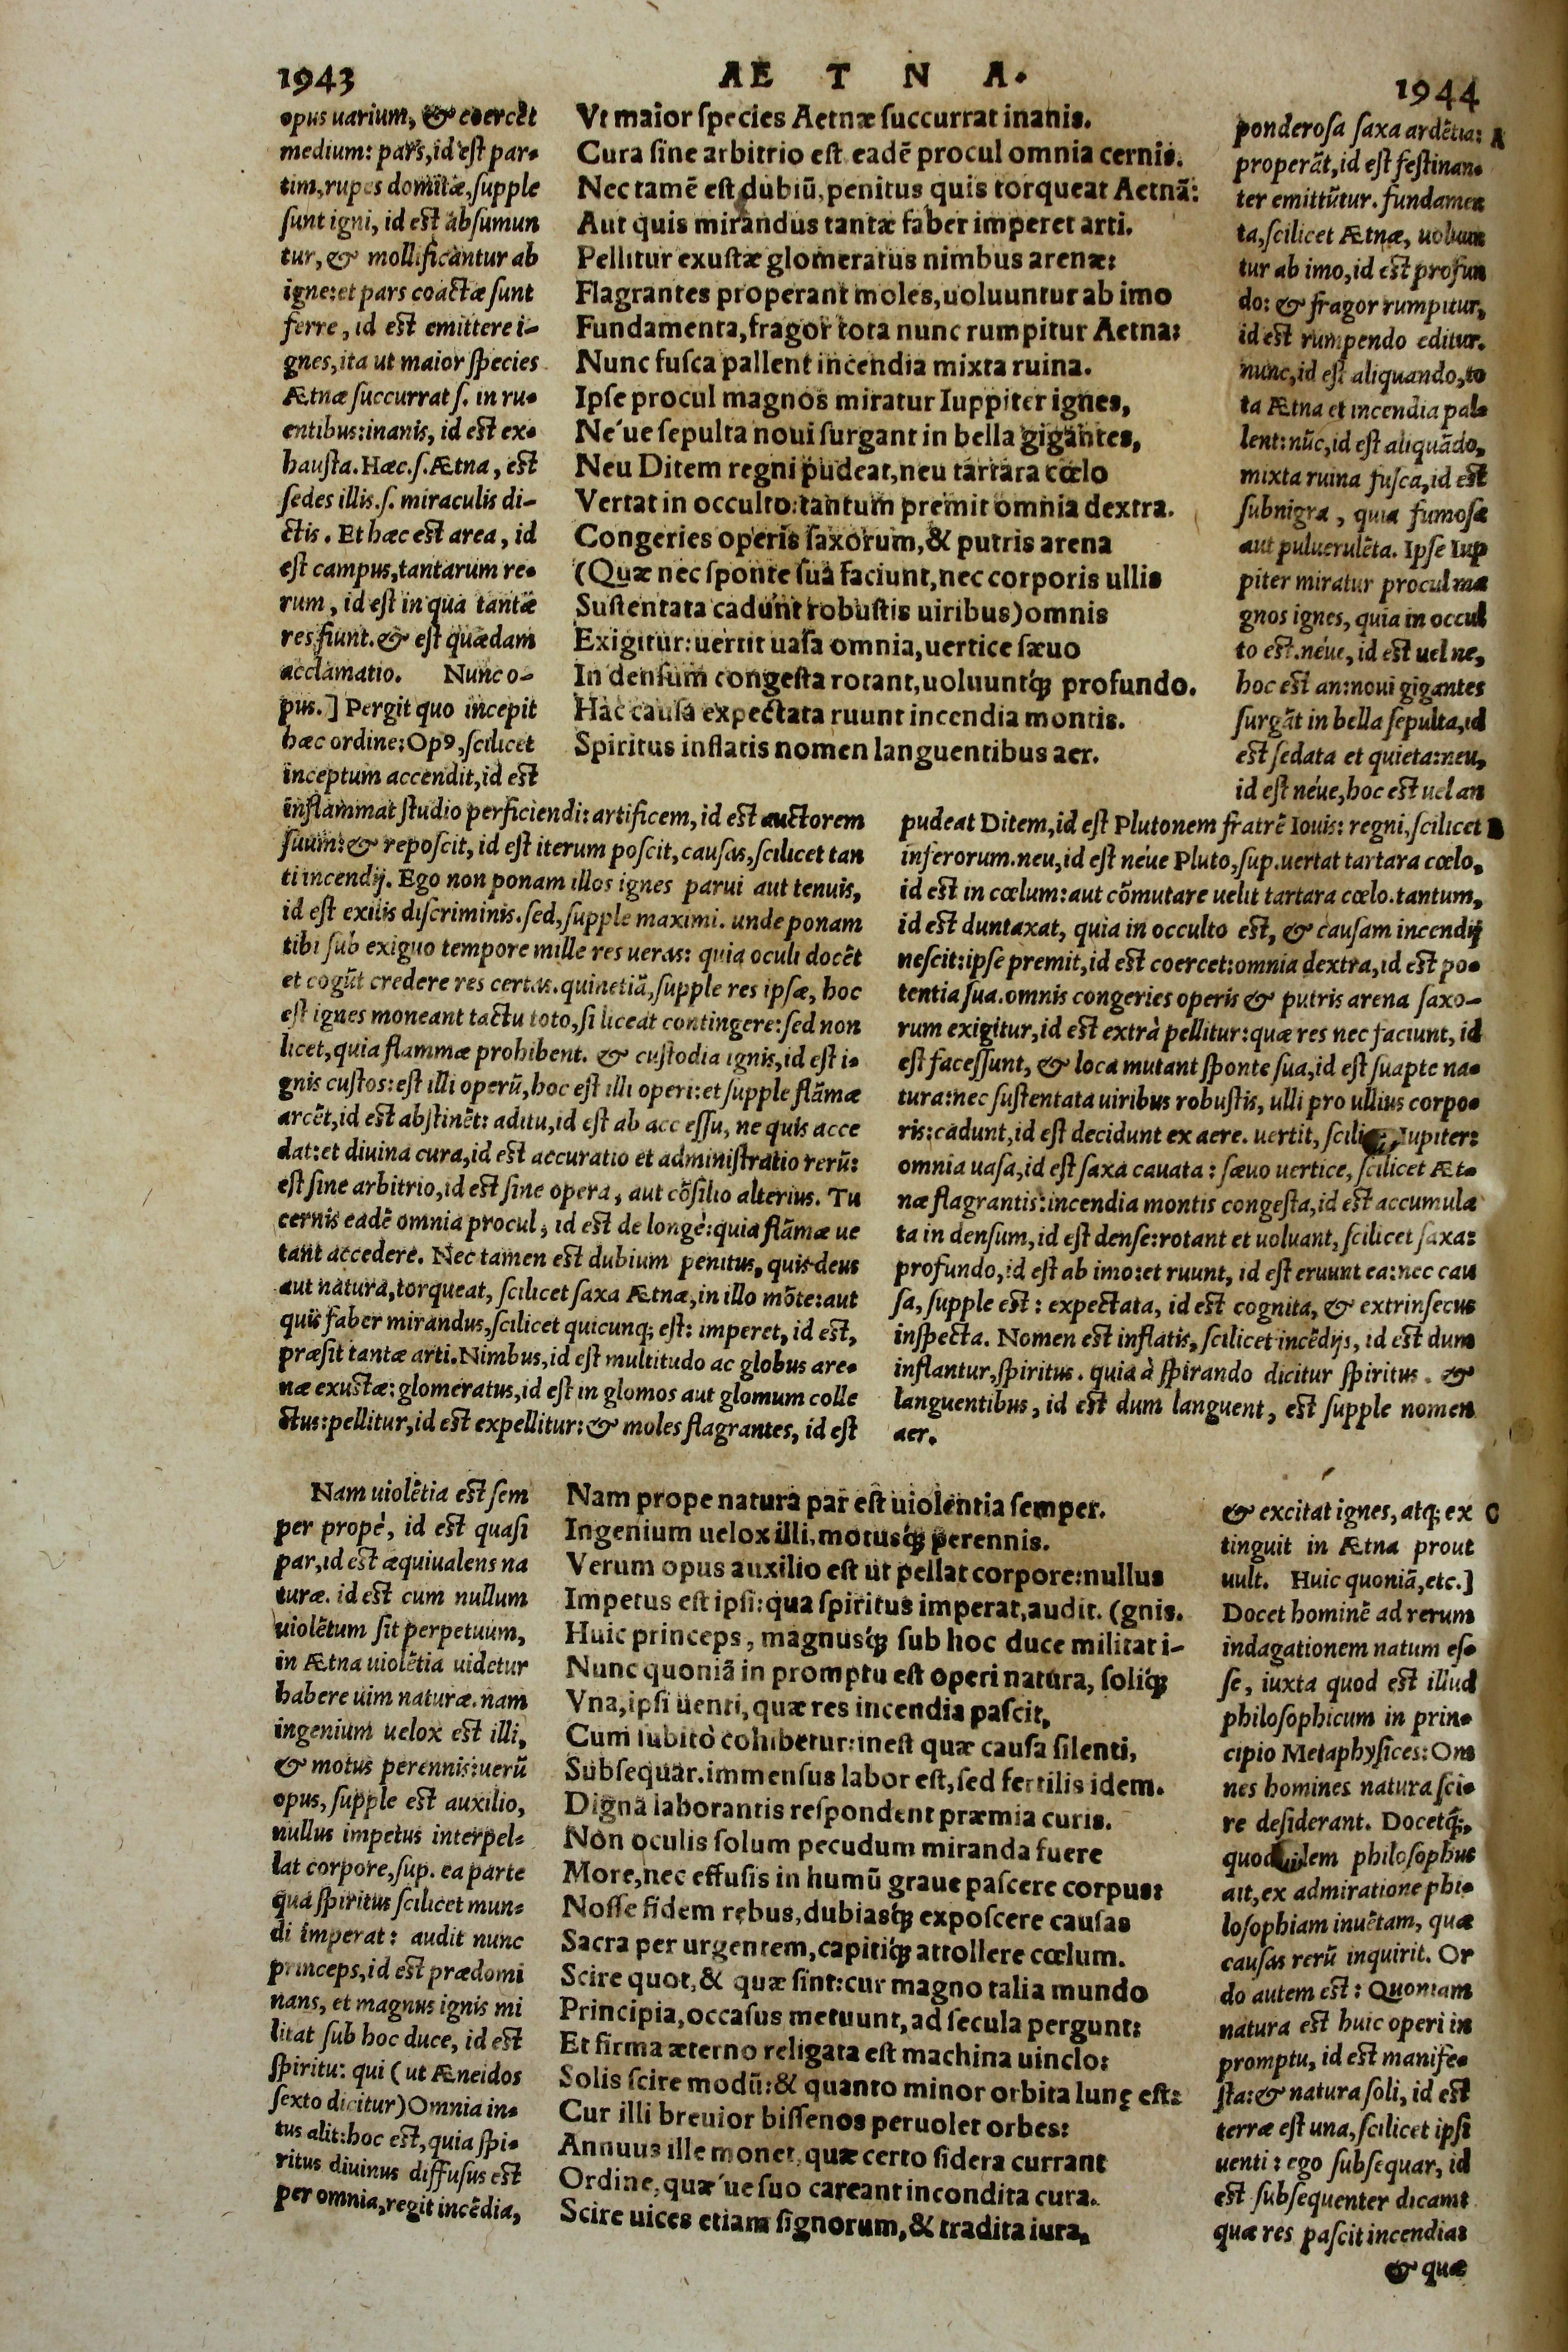 1943
AE T N A.
1944
opus uarium, & coercēt
medium: pars, id est par-
tim, rupes domitæ, supple
sunt igni, id est absumun
tur, & mollificantur ab
igne: et pars coactæ sunt
ferre, id est emittere i-
gnes, ita ut maior species
Ætnæ succurrat s. in ru-
entibus: inanis, id est ex-
hausta. Hæc. s. Ætna, est
sedes illis. s. miraculis di-
ctis. Et hæc est area, id
est campus, tantarum re-
rum, id est in qua tantæ
res fiunt. & est quædam
acclamatio. Nunc o-
pus.] Pergit quo incepit
hæc ordine: Op9, scilicet
inceptum accendit, id est
inflammat studio perficiendi: artificem, id est auctorem
suum: & reposcit, id est iterum poscit, causas, scilicet tan
ti incendij. Ego non ponam illos ignes parui aut tenuis,
id est exilis discriminis. sed, supple maximi. unde ponam
tibi sub exiguo tempore mille res ueras: quia oculi docēt
et cogūt credere res certas. quinetiā, supple res ipsæ, hoc
est ignes moneant tactu toto, si liceat contingere: sed non
licet, quia flammæ prohibent. & custodia ignis, id est i-
gnis custos: est illi operū, hoc est illi operi: et supple flāmæ
arcēt, id est abstinēt: aditu, id est ab acc essu, ne quis acce
dat: et diuina cura, id est accuratio et administratio rerū:
est sine arbitrio, id est sine opera, aut cōsilio alterius. Tu
cernis eadē omnia procul, id est de longè: quia flāmæ ue
tant accedere. Nec tamen est dubium penitus, quis deus
aut natura, torqueat, scilicet saxa Ætnæ, in illo mōte: aut
quis faber mirandus, scilicet quicunq; est: imperet, id est,
præsit tantæ arti. Nimbus, id est multitudo ac globus are-
næ exustæ: glomeratus, id est in glomos aut glomum colle
ctus: pellitur, id est expellitur: & moles flagrantes, id est
Vt maior species Aetnæ succurrat inanis.
Cura sine arbitrio est eadē procul omnia cernis.
Nec tamē est dubiū, penitus quis torqueat Aetnā:
Aut quis mirandus tantæ faber imperet arti.
Pellitur exustæ glomeratus nimbus arenæ:
Flagrantes properant moles, uoluuntur ab imo
Fundamenta, fragor tota nunc rumpitur Aetna:
Nunc fusca pallent incendia mixta ruina.
Ipse procul magnos miratur Iuppiter ignes,
Ne'ue sepulta noui surgant in bella gigantes,
Neu Ditem regni pudeat, neu tartara cœlo
Vertat in occulto: tantum premit omnia dextra.
Congeries operis saxorum, & putris arena
(Quæ nec sponte sua faciunt, nec corporis ullis
Sustentata cadunt robustis uiribus) omnis
Exigitur: uertit uasa omnia, uertice sæuo
In densum congesta rotant, uoluuntq́; profundo.
Hac causa expectata ruunt incendia montis.
Spiritus inflatis nomen languentibus aer.
ponderosa saxa ardētia: A
properāt, id est festinan-
ter emittūtur. fundamen
ta, scilicet Ætnæ, uoluun
tur ab imo, id est profun
do: & fragor rumpitur,
id est rumpendo editur.
nunc, id est aliquando, to
ta Ætna et incendia pal-
lent: nūc, id est aliquādo,
mixta ruina fusca, id est
subnigra, quia fumosa
aut puluerulēta. Ipse Iup
piter miratur procul ma
gnos ignes, quia in occul
to est. néue, id est uel ne,
hoc est an: noui gigantes
surgāt in bella sepulta, id
est sedata et quieta: neu,
id est néue, hoc est uel an
pudeat Ditem, id est Plutonem fratrē Iouis: regni, scilicet B
inferorum. neu, id est néue Pluto, sup. uertat tartara cœlo,
id est in cœlum: aut cōmutare uelit tartara cœlo. tantum,
id est duntaxat, quia in occulto est, & causam incendij
nescit: ipse premit, id est coercet: omnia dextra, id est po-
tentia sua. omnis congeries operis & putris arena saxo-
rum exigitur, id est extrà pellitur: quæ res nec faciunt, id
est facessunt, & loca mutant sponte sua, id est suapte na-
tura: nec sustentata uiribus robustis, ulli pro ullius corpo-
ris: cadunt, id est decidunt ex aere. uertit, Iupiter:
omnia uasa, id est saxa cauata: sæuo uertice, scilicet Æt-
næ flagrantis: incendia montis congesta, id est accumula
ta in densum, id est dense: rotant et uoluant, scilicet saxa:
profundo, id est ab imo: et ruunt, id est eruunt ea: nec cau
sa, supple est: expectata, id est cognita, & extrinsecus
inspecta. Nomen est inflatis, scilicet incēdijs, id est dum
inflantur, spiritus. quia à spirando dicitur spiritus. &
languentibus, id est dum languent, est supple nomen
aer.
Nam uiolētia est sem
per propè, id est quasi
par, id est æquiualens na
turæ. id est cum nullum
uiolētum sit perpetuum,
in Ætna uiolētia uidetur
habere uim naturæ. nam
ingenium uelox est illi,
& motus perennis: uerū
opus, supple est auxilio,
nullus impetus interpel-
lat corpore, sup. ea parte
qua spiritus scilicet mun-
di imperat: audit nunc
princeps, id est prædomi
nans, et magnus ignis mi
litat sub hoc duce, id est
spiritu: qui (ut Æneidos
sexto dicitur) Omnia in-
tus alit: hoc est, quia spi-
ritus diuinus diffusus est
per omnia, regit incēdia,
Nam prope natura par est uiolentia semper.
Ingenium uelox illi, motusq́; perennis.
Verum opus auxilio est ut pellat corpore: nullus
Impetus est ipsi: qua spiritus imperat, audit. (gnis.
Huic princeps, magnusq́; sub hoc duce militat i-
Nunc quoniā in promptu est operi natura, soliq́;
Vna, ipsi uenti, quæ res incendia pascit,
Cum subitò cohibetur: inest quæ causa silenti,
Subsequar. immensus labor est, sed fertilis idem.
Digna laborantis respondent præmia curis.
Non oculis solum pecudum miranda fuere
More, nec effusis in humū graue pascere corpus:
Nosse fidem rebus, dubiasq́; exposcere causas
Sacra per urgentem, capitiq́; attollere cœlum.
Scire quot, & quæ sint: cur magno talia mundo
Principia, occasus metuunt, ad secula pergunt:
Et firma æterno religata est machina uinclo:
Solis scire modū: & quanto minor orbita lunę est:
Cur illi breuior bissenos peruolet orbes:
Annuus ille monet, quæ certo sidera currant
Ordine, quæ'ue suo careant incondita cura.
Scire uices etiam signorum, & tradita iura,
& excitat ignes, atq; ex C
tinguit in Ætna prout
uult. Huic quoniā, etc.]
Docet hominē ad rerum
indagationem natum es-
se, iuxta quod est illud
philosophicum in prin-
cipio Metaphysices: Om
nes homines natura sci-
re desiderant. Docetq́;,
philosophus
ait, ex admiratione phi-
losophiam inuētam, quæ
causas rerū inquirit. Or
do autem est: Quoniam
natura est huic operi in
promptu, id est manife-
sta: & natura soli, id est
terræ est una, scilicet ipsi
uenti: ego subsequar, id
est subsequenter dicam:
quæ res pascit incendia:
& quæ